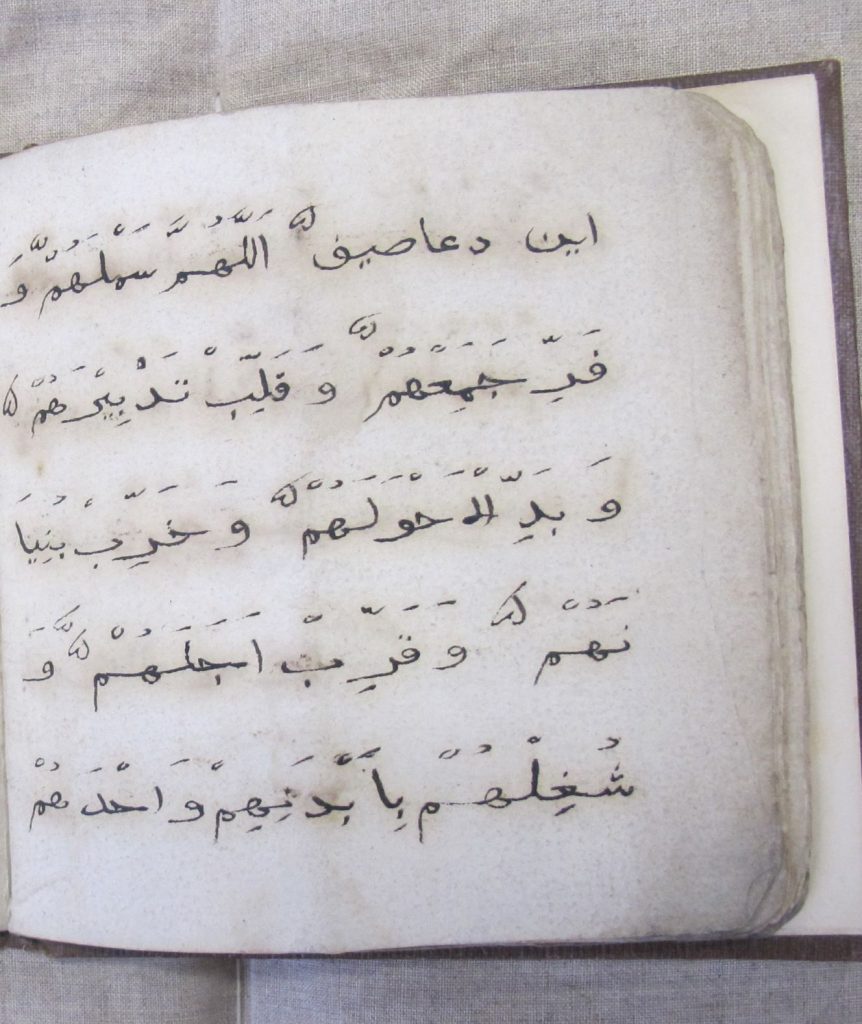 اين دعا صيف اَللّٰهُمَّ سَملَهُمْ وَ
فَرِّ جَمِعَهُمْ وَ قَلِّبْ تَدْبِيْرَهُمْ
وَ بَدِّ الْ حَوْلَهُمْ وَ خَرِّبْ بُنِيَا
نَهُمْ وَ قَرِّ بْ اَجَلَهُمْ وَ
شُغِلْهُمْ بِاَبْدَنِهِمْ وَ احْدَ هُمْ